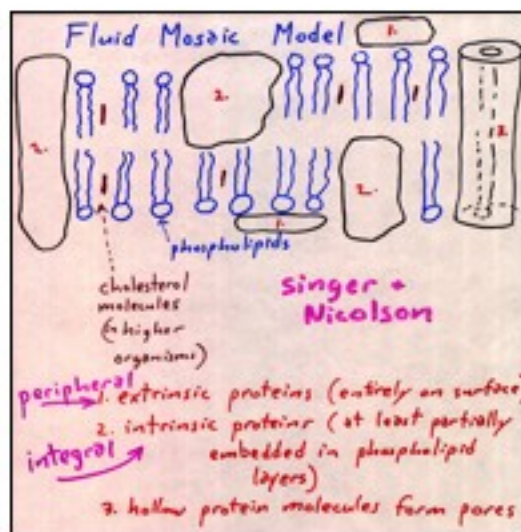 Fluid Mosaic Model
1.
2.
2.
3
2.
1.
phospholipids
cholesterol
molecules
(in higher
organisms)
Singer +
Nicolson
peripheral
1. extrinsic proteins (entirely on surface
integral
2. intrinsic proteins (at least partially
embedded in phospholipid
layers)
3. hollow protein molecules form pores